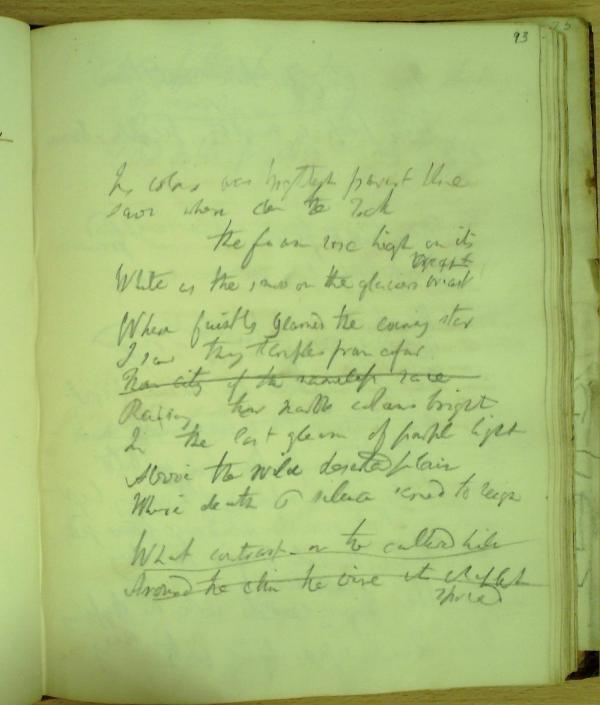 93
Its colour was brightest purest blue
Save where on the rock
the foam rose high on its
breast
White as the snow on the glaciers breast
When faintly gleamed the evening star
I saw thy temples from afar
of the nameless race
Raising their marble columns bright
In the last gleam of purple light
Above the wide deserted plain
Where death & silence seemed to reign
What contrast on the cultured hills
Around the elm the vine its
spread